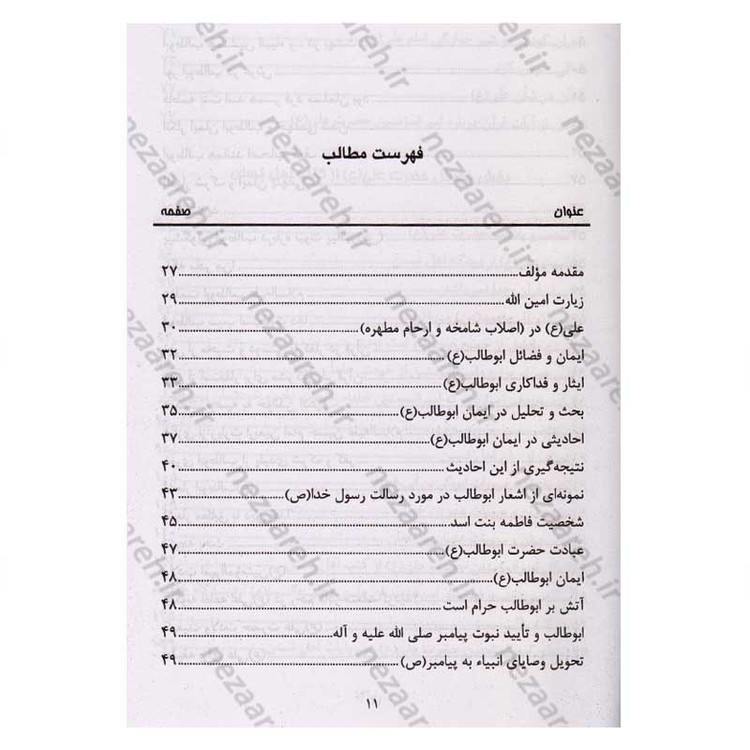 فهرست مطالب
عنوان صفحه
مقدمه مؤلف ۲۷
زیارت امین الله ۲۹
علی(ع) در (اصلاب شامخه و ارحام مطهره) ۳۰
ایمان و فضائل ابوطالب(ع) ۳۲
ایثار و فداکاری ابوطالب(ع) ۳۳
بحث و تحلیل در ایمان ابوطالب(ع) ۳۵
احادیثی در ایمان ابوطالب(ع) ۳۷
نتیجه‌گیری از این احادیث ۴۰
نمونه‌ای از اشعار ابوطالب در مورد رسالت رسول خدا(ص) ۴۳
شخصیت فاطمه بنت اسد ۴۵
عبادت حضرت ابوطالب(ع) ۴۷
ایمان ابوطالب(ع) ۴۸
آتش بر ابوطالب حرام است ۴۸
ابوطالب و تأیید نبوت پیامبر صلی الله علیه و آله ۴۹
تحویل وصایای انبیاء به پیامبر(ص) ۴۹
۱۱
nezaareh.ir